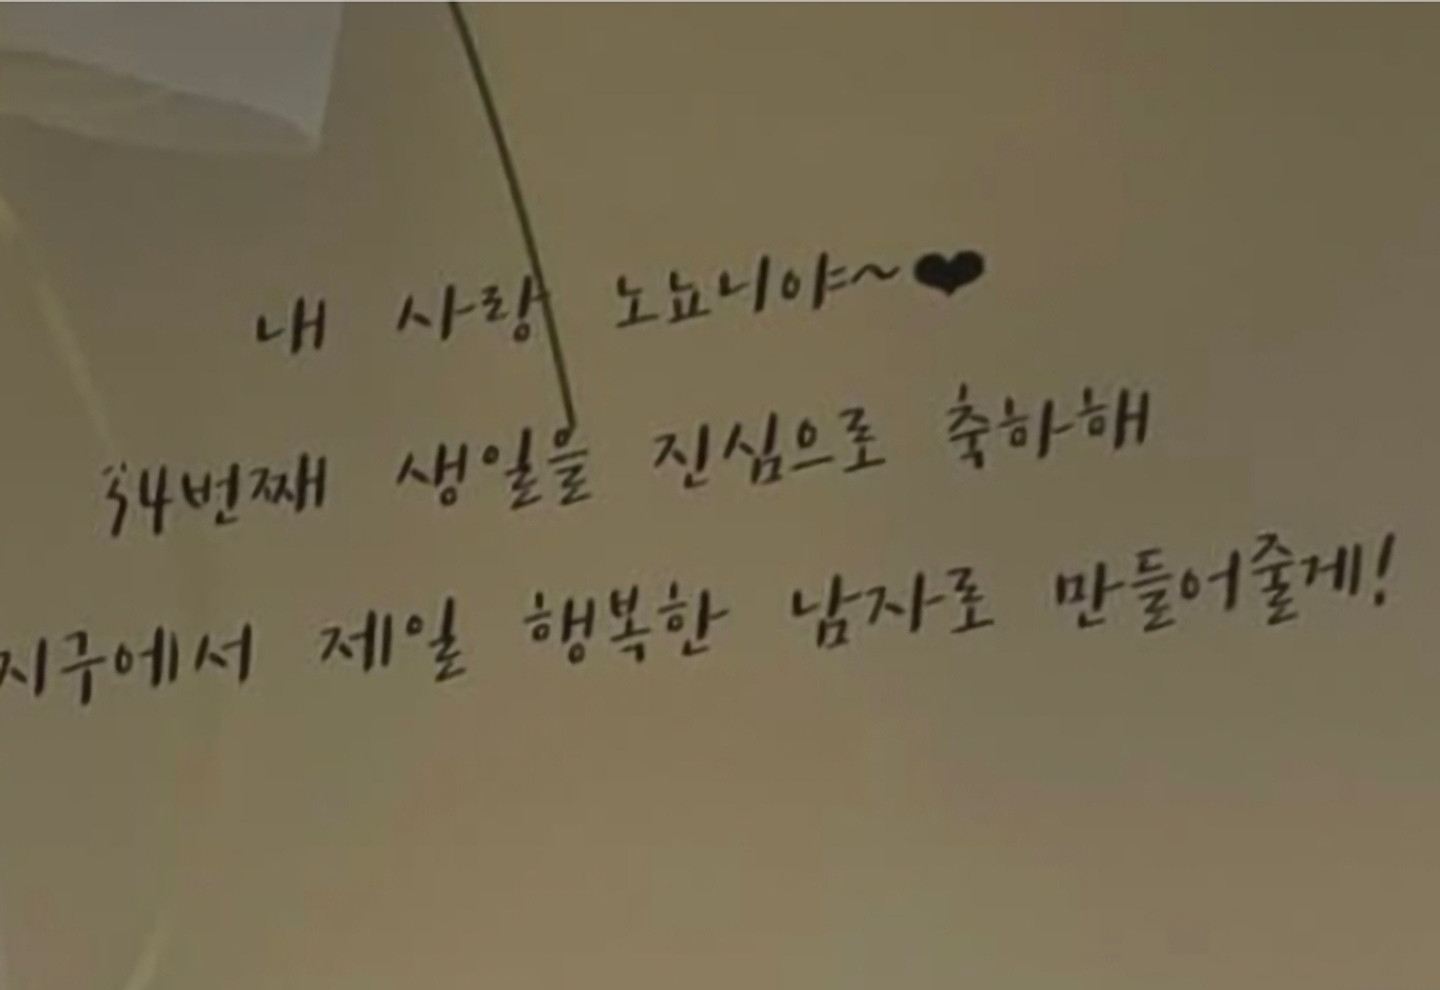 내 사랑 노뇨니야~♥
34번째 생일을 진심으로 축하해
지구에서 제일 행복한 남자로 만들어줄게!